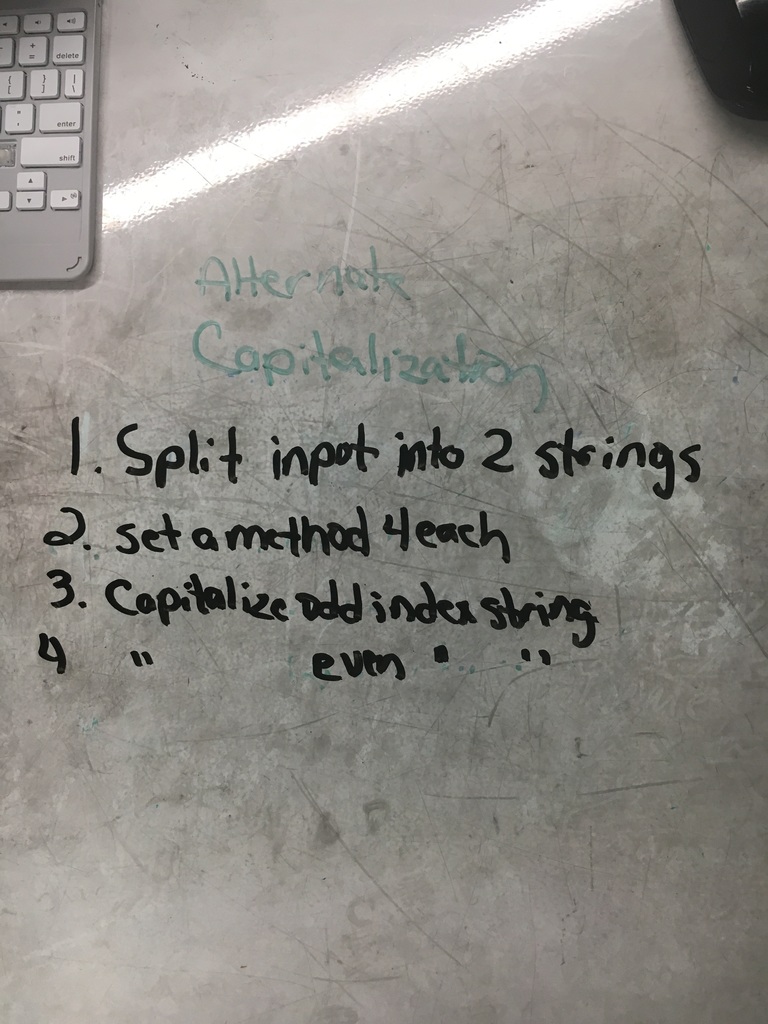 delete
enter
shift
Alternate
Capitalization
1. Split input into 2 strings
2. set a method 4 each
3. Capitalize odd index string
4 " even " "